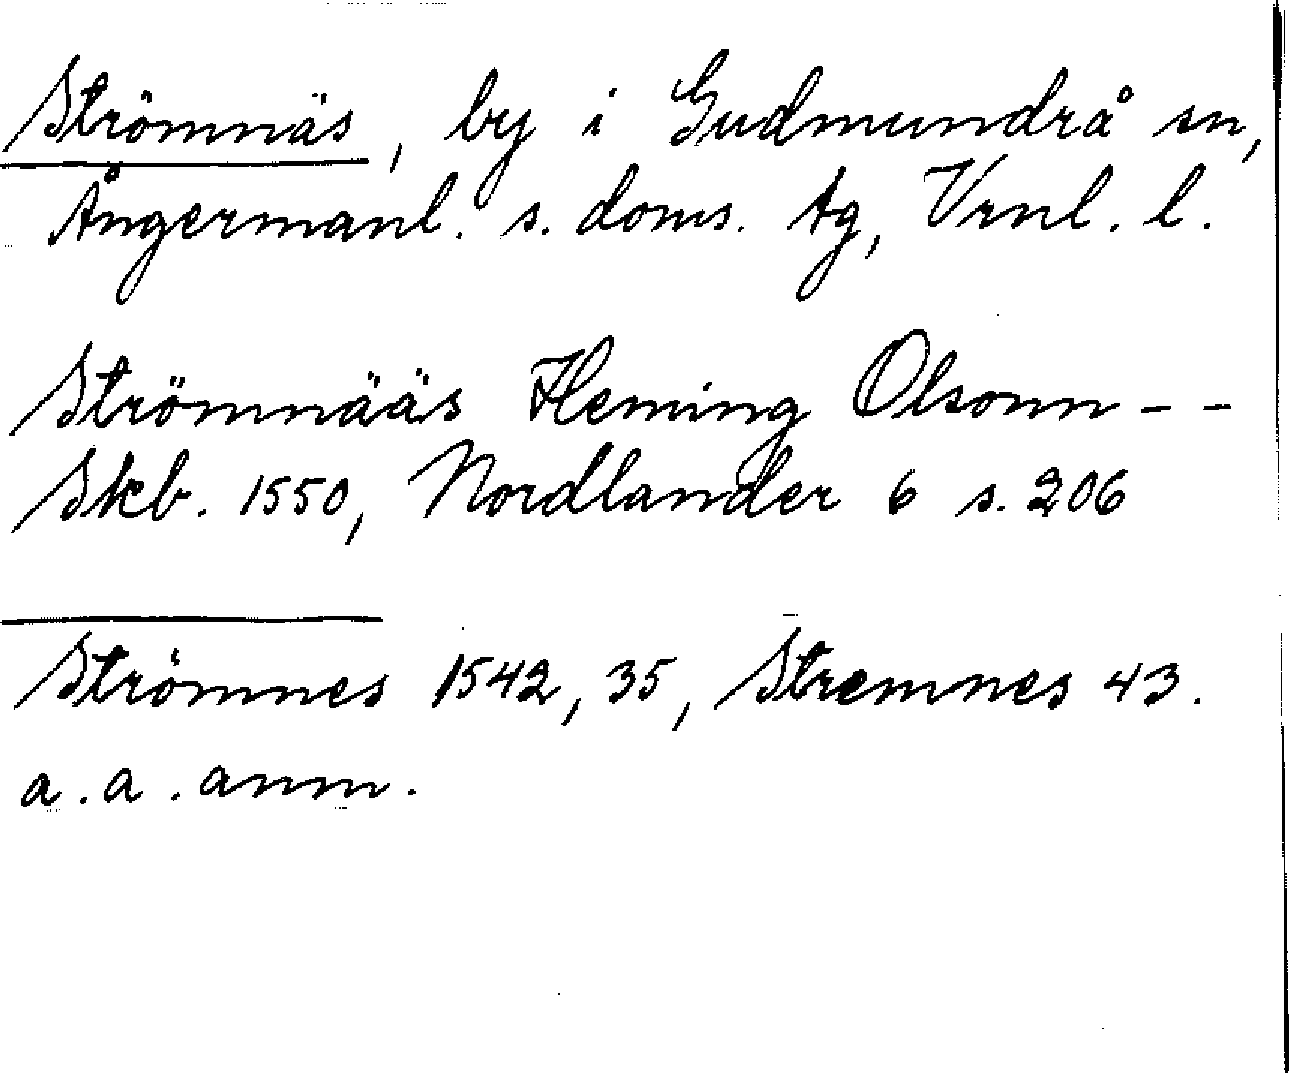 Strömnäs, by i Gudmundrå sn,
Ångermanl. s. doms. tg, Vrnl. l.
Strömnääs Heming Olsonn - -
Skb. 1550, Nordlander 6 s. 206
Strömnes 1542, 35, Stremnes 43.
a. a. anm.